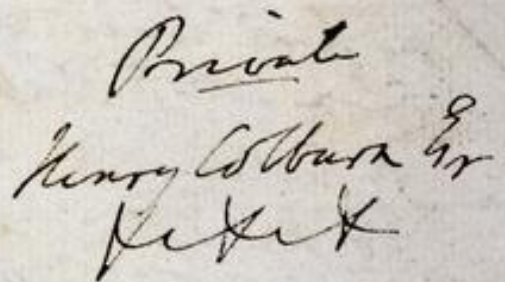 Private
Henry Colburn Esqr